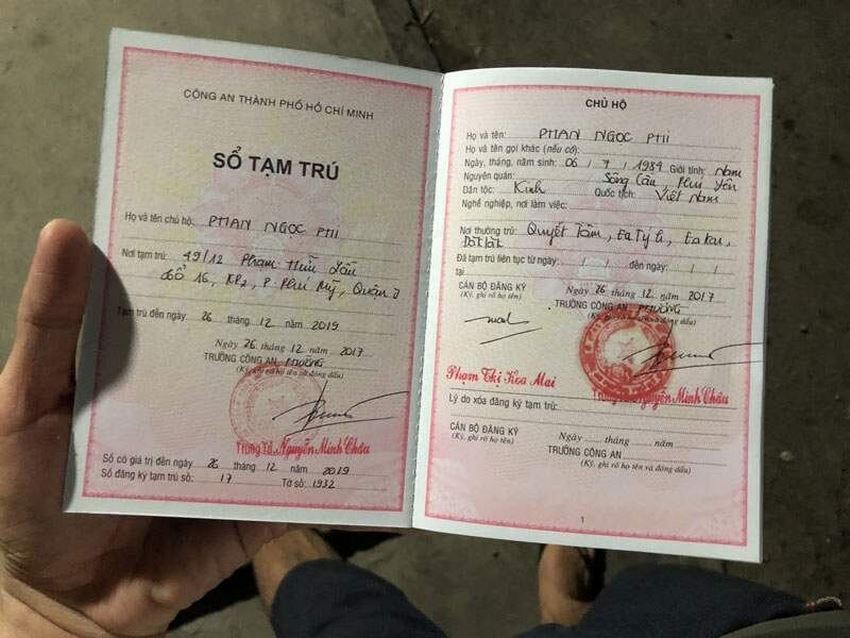 CÔNG AN THÀNH PHỐ HỒ CHÍ MINH
SỔ TẠM TRÚ
Họ và tên chủ hộ: PHAN NGỌC PHI
Nơi tạm trú: 49/12 Phạm Hữu Lầu
tổ 16, KP2, P. Phú Mỹ, Quận 7
Tạm trú đến ngày 26 tháng 12 năm 2019
Ngày 26 tháng 12 năm 2017
TRƯỞNG CÔNG AN PHƯỜNG
(Ký, ghi rõ họ tên và đóng dấu)
Trung Tá Nguyễn Minh Châu
Sổ có giá trị đến ngày 26 tháng 12 năm 2019
Sổ đăng ký tạm trú số: 17 Tờ số: 1932
CHỦ HỘ
Họ và tên: PHAN NGỌC PHI
Họ và tên gọi khác (nếu có):
Ngày, tháng, năm sinh: 06 / 7 / 1984 Giới tính: Nam
Nguyên quán: Sông Cầu, Phú Yên
Dân tộc: Kinh Quốc tịch: Việt Nam
Nghề nghiệp, nơi làm việc:
Nơi thường trú: Quyết Tâm, Ea Ty h, Ea kar,
Đăk lăk
Đã tạm trú liên tục từ ngày: / / đến ngày: / /
tại
CÁN BỘ ĐĂNG KÝ
(Ký, ghi rõ họ tên)
Ngày 26 tháng 12 năm 2017
TRƯỞNG CÔNG AN PHƯỜNG
(Ký, ghi rõ họ tên và đóng dấu)
Phạm Thị Hoa Mai
Trung Tá Nguyễn Minh Châu
Lý do xóa đăng ký tạm trú:
CÁN BỘ ĐĂNG KÝ
(Ký, ghi rõ họ tên)
Ngày tháng năm
TRƯỞNG CÔNG AN
(Ký, ghi rõ họ tên và đóng dấu)
1